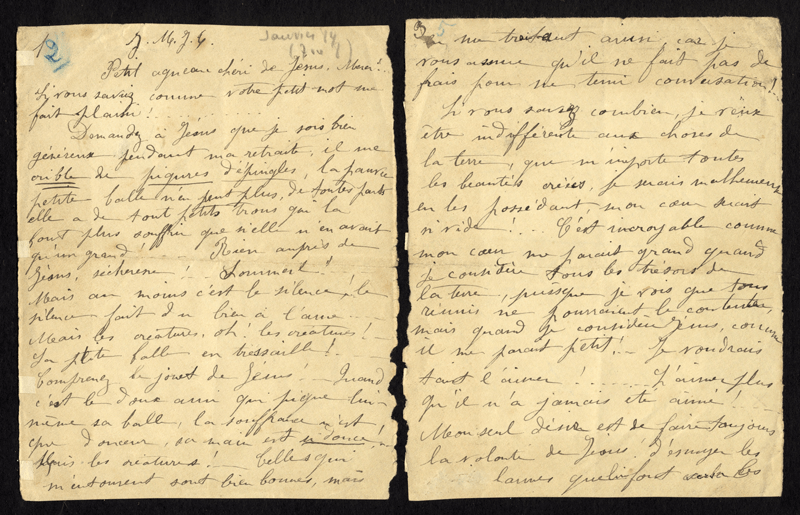 1
12
J. M. J. T.
Janvier 89
Petit agneau chéri de Jésus, Merci!...
Si vous saviez comme votre petit mot me
fait plaisir!....
Demandez à Jésus que je sois bien
généreuse pendant ma retraite, il me
crible de piqures d'épingles, la pauvre
petite balle n'en peut plus, de toutes parts
elle a de tout petits trous qui la
font plus souffrir que si elle n'en avait
qu'un grand!... Rien auprès de
Jésus, sécheresse!... Sommeil!
Mais au moins c'est le silence! le
silence fait du bien à l'âme....
Mais les créatures, oh! les créatures!...
La petite balle en tressaille!..
Comprenez le jouet de Jésus!... Quand
c'est le doux ami qui pique lui-
même sa balle, la souffrance n'est
que douceur, sa main est si douce!...
Mais les créatures!... Celles qui
m'entourent sont bien bonnes, mais
3
5
me
car je
vous assure qu'il ne fait pas de
frais pour me tenir conversation!..
Si vous saviez combien je veux
être indifférente aux choses de
la terre, que m'importe toutes
les beautés créées, je serais malheureuse
en les possédant mon cœur serait
si vide!... C'est incroyable comme
mon cœur me parait grand quand
je considère tous les trésors de
la terre, puisque je vois que tous
réunis ne pourraient le contenter,
mais quand je considère Jésus, comme
il me parait petit!... Je voudrais
tant l'aimer!...... L'aimer plus
qu'il n'a jamais été aimé!...
Mon seul désir est de faire toujours
la volonté de Jésus. d'essuyer les
larmes que lui font les